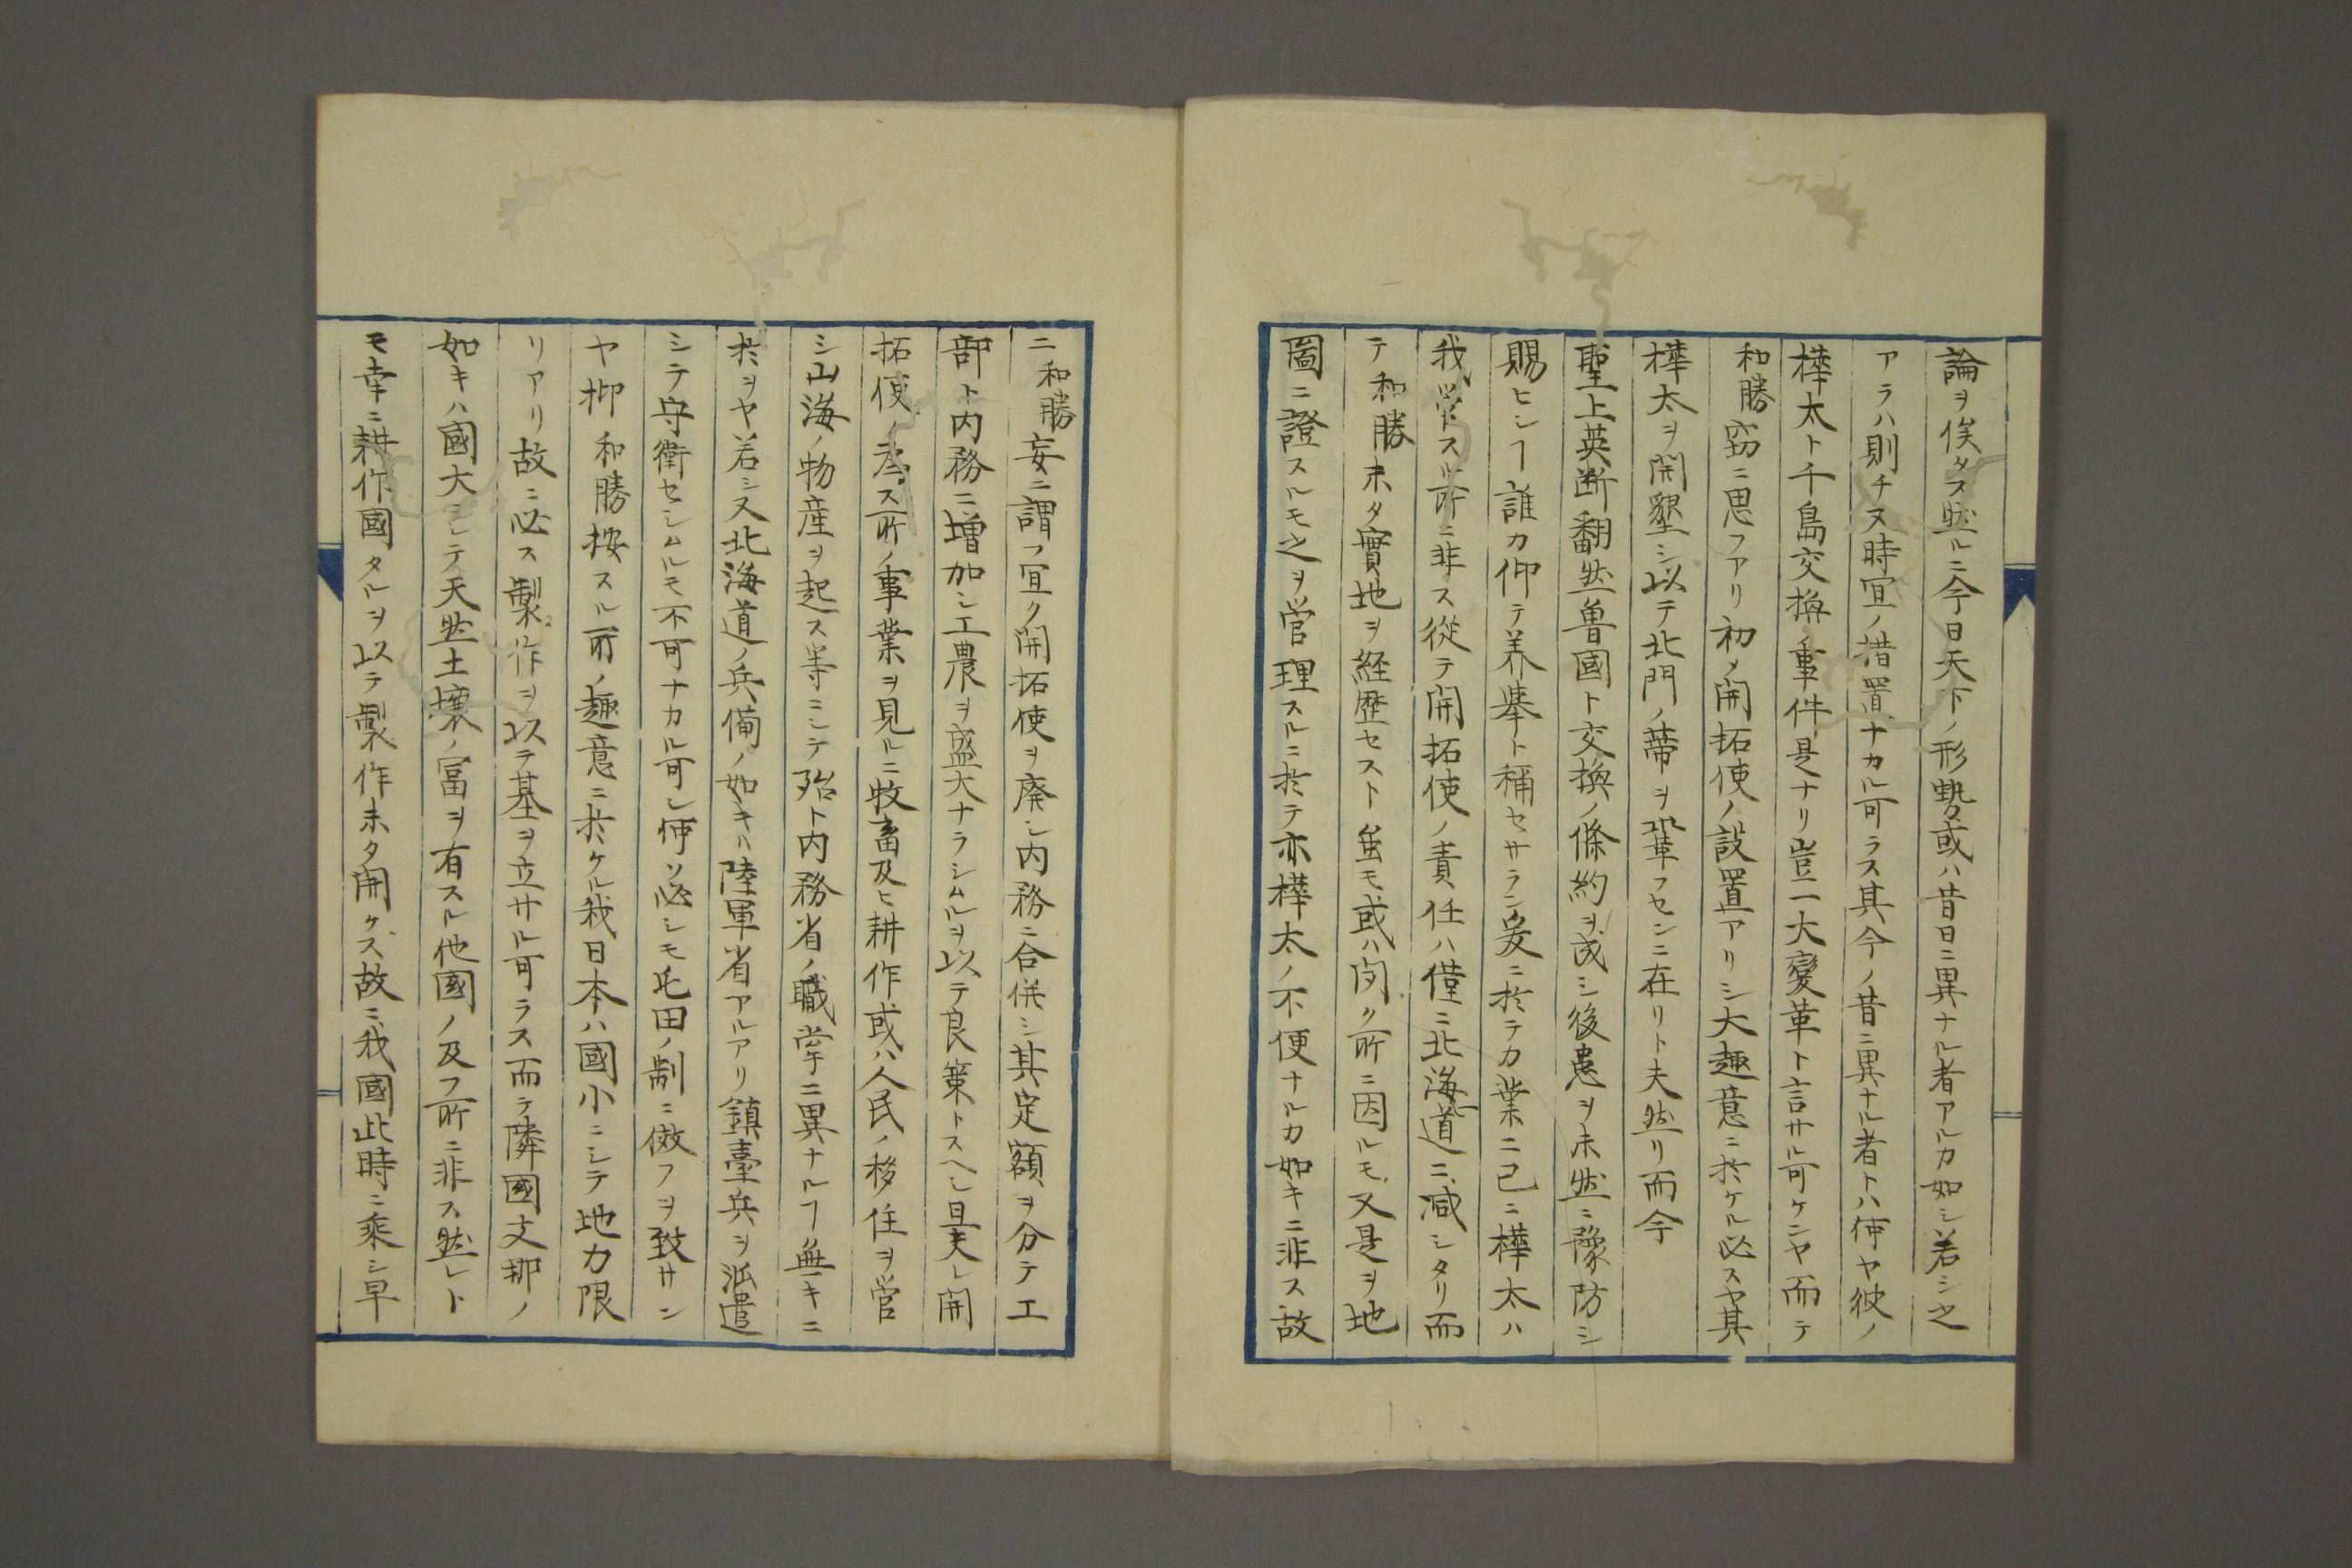 論ヲ俟タス然ルニ今日天下ノ形勢或ハ昔日ニ異ナル者アルカ如シ若シ之
アラハ則チ又時宜ノ措置ナカル可ラス其今ノ昔ニ異ナル者トハ何ヤ彼ノ
樺太ト千島交換ノ事件是ナリ豈一大變革ト言サル可ケンヤ而テ
和勝窃ニ思フアリ初メ開拓使ノ設置アリシ大趣意ニ於ケル必スヤ其
樺太ヲ開墾シ以テ北門ノ蔕ヲ鞏フセンニ在リト夫然リ而今
聖上英断翻然魯國ト交換ノ條約ヲ成シ後患ヲ未然ニ豫防シ
賜ヒシヿ誰カ仰テ美擧ト稱セサラン爰ニ於テカ業ニ已ニ樺太ハ
我管スル所ニ非ス從テ開拓使ノ責任ハ僅ニ北海道ニ減シタリ而
テ和勝未タ實地ヲ経歴セスト雖モ或ハ聞ク所ニ因ルモ又是ヲ地
圖ニ證スルモ之ヲ管理スルニ於テ亦樺太ノ不便ナルカ如キニ非ス故
ニ和勝妄ニ謂フ宜ク開拓使ヲ廃シ内務ニ合併シ其定額ヲ分テ工
部ト内務ニ増加シ工農ヲ盛大ナラシムルヲ以テ良策トスヘシ是夫レ開
拓使ノ為ス所ノ事業ヲ見ルニ牧畜及ヒ耕作或ハ人民ノ移住ヲ営
シ山海ノ物産ヲ起ス等ニシテ殆ト内務省ノ職掌ニ異ナルヿ無キニ
於ヲヤ若シ又北海道ノ兵備ノ如キハ陸軍省アルアリ鎮臺兵ヲ派遣
シテ守衛セシムルモ不可ナカル可シ何ソ必シモ屯田ノ制ニ倣フヲ致サン
ヤ抑和勝按スル所ノ趣意ニ於ケル我日本ハ國小ニシテ地力限
リアリ故ニ必ス製作ヲ以テ基ヲ立サル可ラス而テ隣國支那ノ
如キハ國大ニシテ天然土壌ノ富ヲ有スル他國ノ及フ所ニ非ス然レト
モ幸ニ耕作國タルヲ以テ製作未タ開ケス故ニ我國此時ニ乘シ早